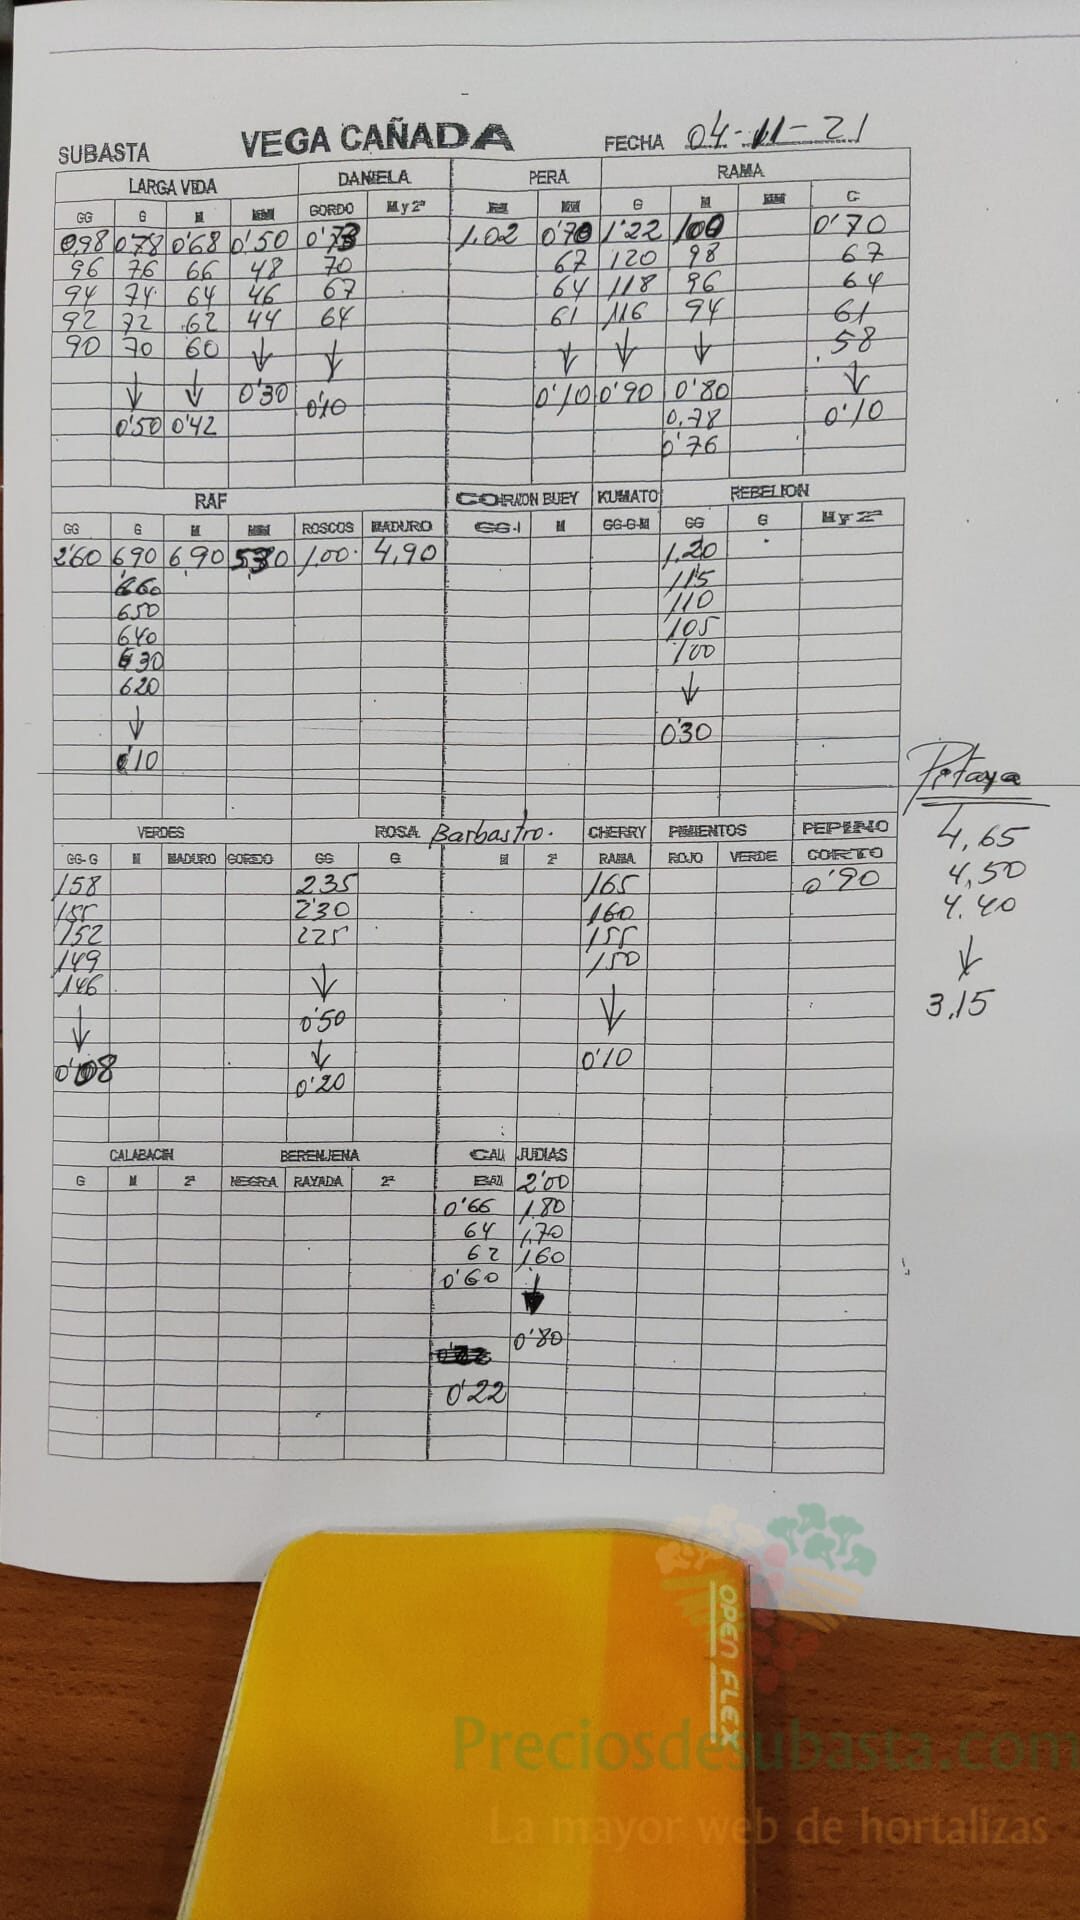 SUBASTA VEGA CAÑADA FECHA 04-11-21
LARGA VIDA DANIELA PERA RAMA
GG G M MM GORDO M y 2ª M MM G M MM G
0,98 0'78 0'68 0'50 0'73 1,02 0'70 1'22 100 0'70
96 76 66 48 70 67 120 98 67
94 74 64 46 67 64 118 96 64
92 72 62 44 64 61 116 94 61
90 70 60 ↓ ↓ ↓ ↓ ↓ 58
↓ ↓ 0'30 0'10 0'10 0'90 0'80 ↓
0'50 0'42 0,78 0'10
0'76
RAF CORAZON BUEY KUMATO REBELION
GG G M MM ROSCOS MADURO GG-1 M GG-G-M GG G M y 2ª
2'60 6,90 6,90 1,00 4,90 1,20
660 115
650 110
640 105
630 100
620 ↓
↓ 0'30
10
Pitaya
4,65
4,50
4.40
↓
3,15
VERDES ROSA Barbastro. CHERRY PIMIENTOS PEPINO
GG-G M MADURO GORDO GG G M 2ª RAMA ROJO VERDE CORTO
158 235 165 0'90
155 2'30 160
152 225 155
149 150
146 ↓ ↓
↓ 0'50
0'08 ↓ 0'10
0'20
CALABACIN BERENJENA CALI JUDIAS
G M 2ª NEGRA RAYADA 2ª BALI 2'00
0'66 1,80
64 1,70
62 1,60
0'60 ↓
0'80
0'22
OPEN FLEX
Preciosdesubasta.com
La mayor web de hortalizas